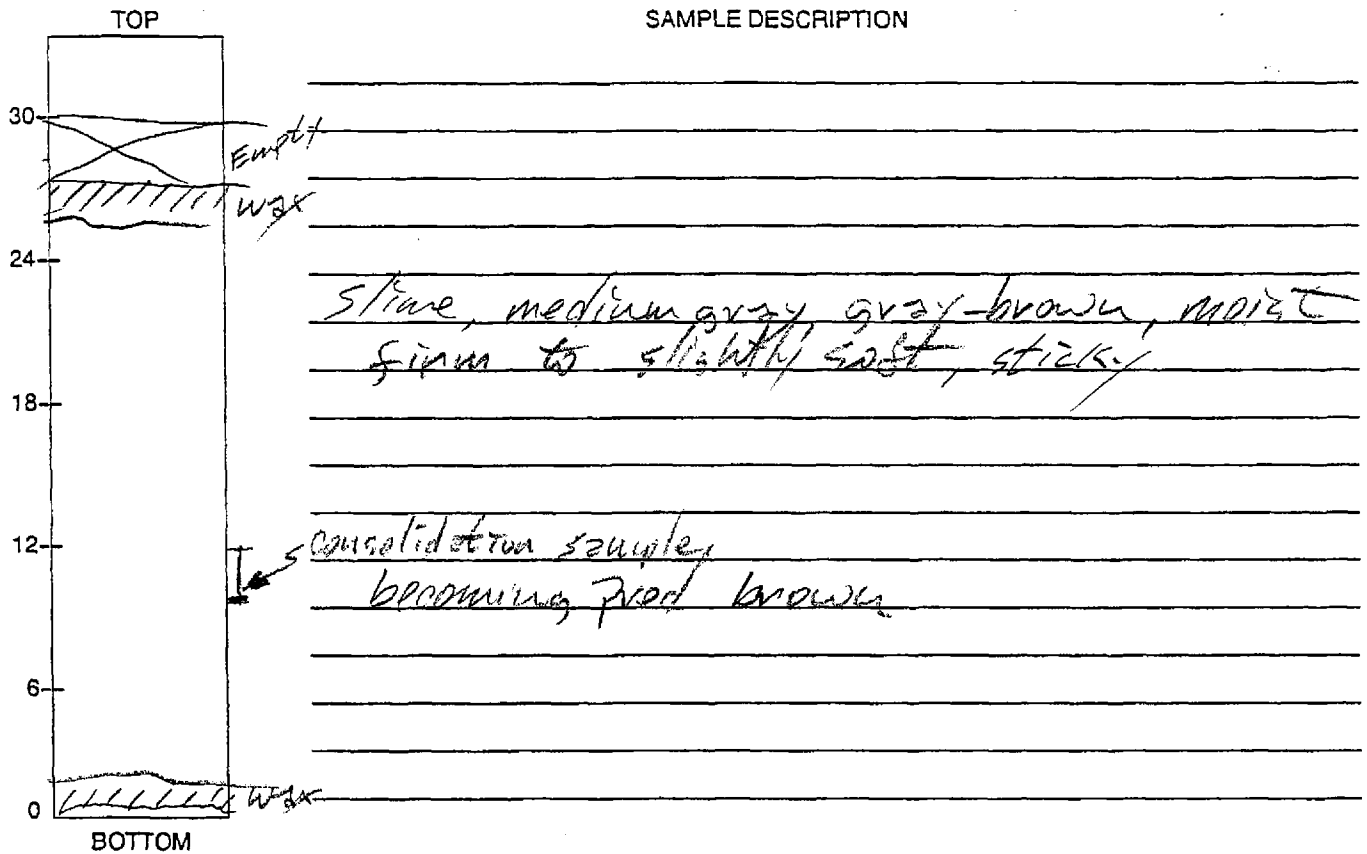 TOP
SAMPLE DESCRIPTION
30
Empty
Wax
24
Slime, medium gray, gray-brown, moist
firm to slightly soft, sticky
18
12
consolidation sample,
becoming pred brown
6
0
Wax
BOTTOM